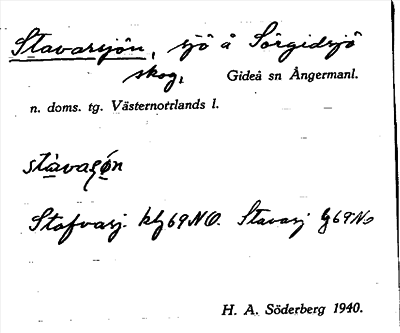 Stavarsjön, sjö å Sörgidsjö
skog, Gideå sn Ångermanl.
n. doms. tg. Västernorrlands l.
Stafvarsj. kbj 69 NO. Stavarsj g 69 NO
H. A. Söderberg 1940.